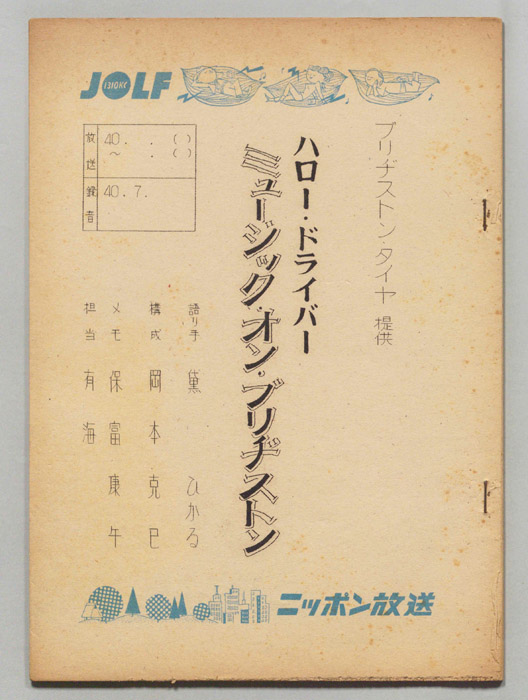 JOLF
1310KC
ブリヂストン・タイヤ 提供
ハロー・ドライバー
ミュージック・オン・ブリヂストン
放送 40. . ( )
〜 . ( )
録音 40.7.
語り手 黛 ひかる
構成 岡本克巳
メモ 保富康午
担当 有海
ニッポン放送